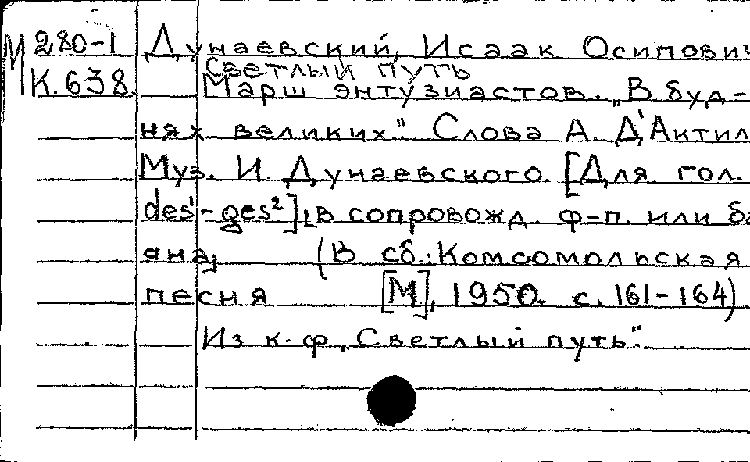 М 280-1 Дунаевский, Исаак Осипович
Светлый путь
К.638 Марш энтузиастов. „В буд-
нях великих" Слова А. Д'Актил
Муз. И. Дунаевского. [Для гол.
des¹-ges²], в сопровожд. ф-п. или ба
яна, (В сб.: Комсомольская
песня [М], 1950. с. 161-164)
Из к.ф. „Светлый путь".